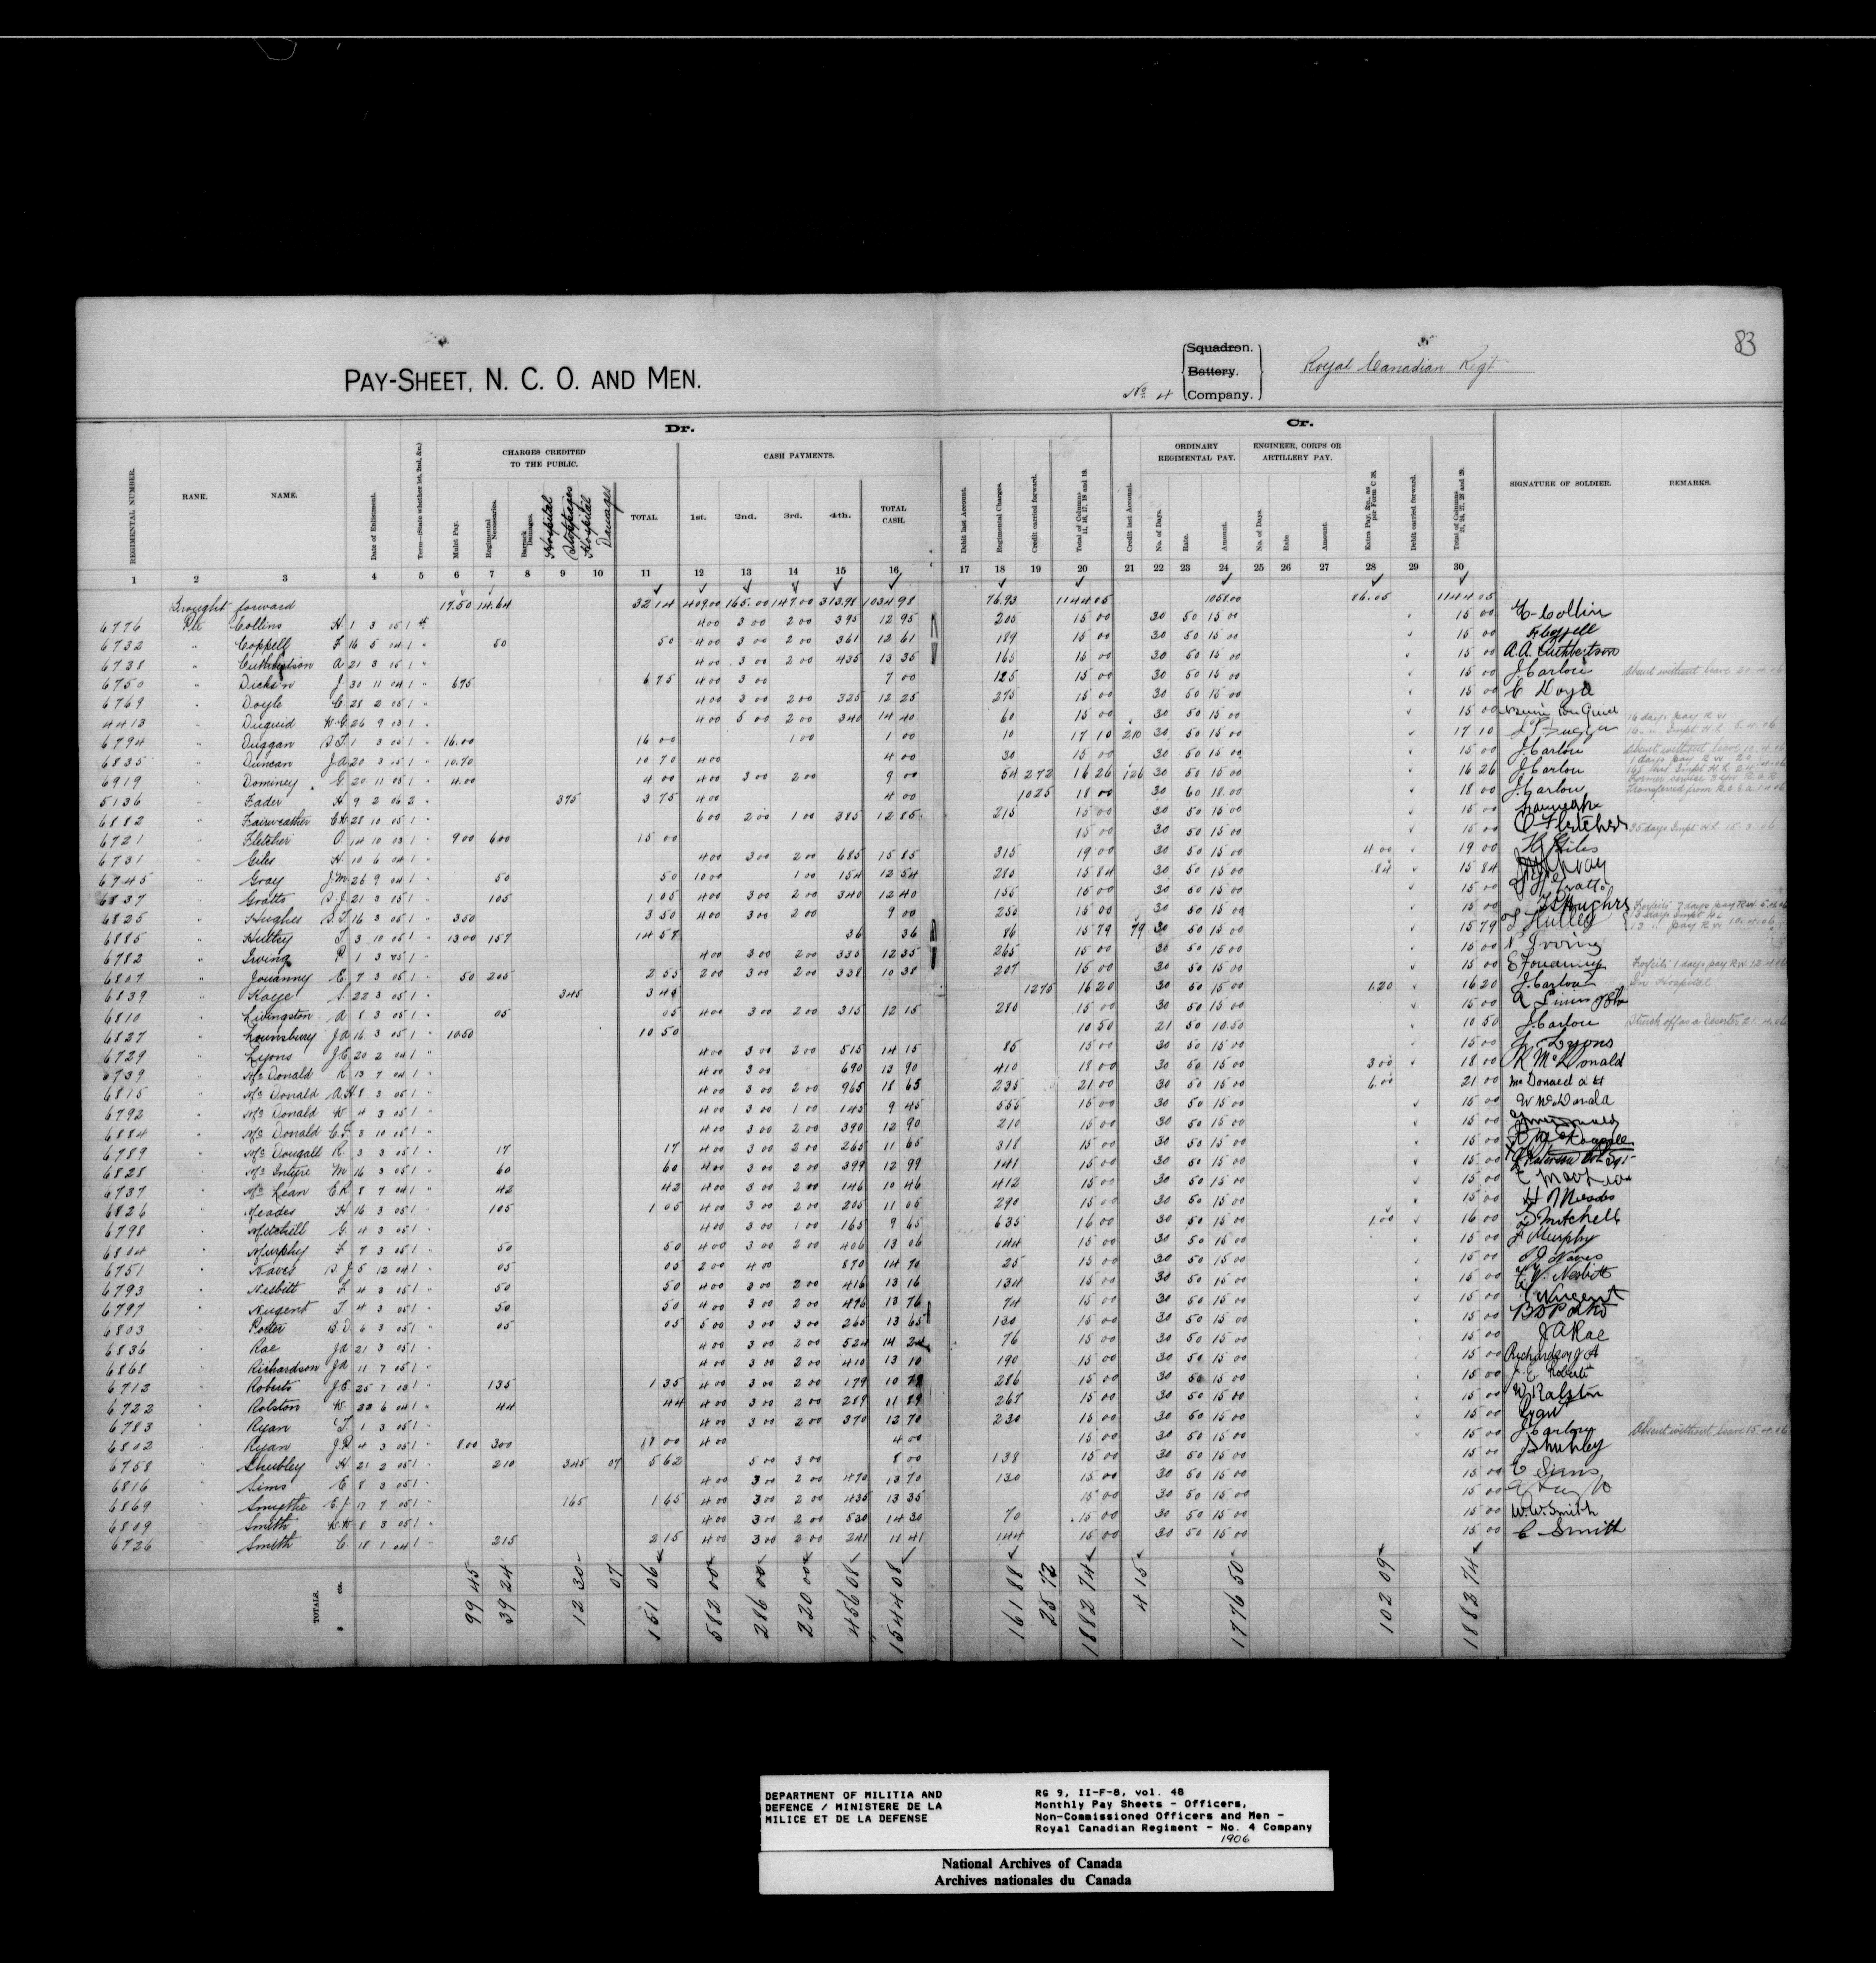 83
PAY-SHEET, N. C. O. AND MEN.
No 4 Squadron. Battery. Company. Royal Canadian Regt
Dr. Cr.
CHARGES CREDITED TO THE PUBLIC. CASH PAYMENTS. ORDINARY REGIMENTAL PAY. ENGINEER, CORPS OR ARTILLERY PAY.
REGIMENTAL NUMBER. RANK. NAME. Date of Enlistment. Term—(State whether 1st, 2nd, &c.) Mulct Pay. Regimental Necessaries. Barrack Damages. Hospital Stoppages Hospital Damages TOTAL 1st. 2nd. 3rd. 4th. TOTAL CASH. Debit last Account. Regimental Charges. Credit carried forward. Total of Columns 11, 16, 17, 18 and 19. Credit last Account. No. of Days. Rate. Amount. No. of Days. Rate Amount. Extra Pay, &c., as per Form C 28. Debit carried forward. Total of Columns 21, 24, 27, 28 and 29. SIGNATURE OF SOLDIER. REMARKS.
1 2 3 4 5 6 7 8 9 10 11 12 13 14 15 16 17 18 19 20 21 22 23 24 25 26 27 28 29 30
Brought forward 17.50 14.64 32 14 409.00 165.00 147.00 313.98 1034 98 76.93 1144.05 1058.00 86.05 1144.05
6776 Pte Collins H. 1 3 05 1st 4 00 3 00 2 00 3 95 12 95 2 05 15 00 30 50 15 00 15 00
6732 " Coppell F. 16 5 04 1 " 50 50 4 00 3 00 2 00 3 61 12 61 1 89 15 00 30 50 15 00 15 00
6738 " Cuthbertson A 21 3 05 1 " 4 00 3 00 2 00 4 35 13 35 1 65 15 00 30 50 15 00 15 00 A.A. Cuthbertson
6750 " Dickson J. 30 11 04 1 " 6 75 6 75 4 00 3 00 7 00 1 25 15 00 30 50 15 00 15 00 J. Carlou Absent without leave 20.4.06
6769 " Doyle C. 28 2 05 1 " 4 00 3 00 2 00 3 25 12 25 2 75 15 00 30 50 15 00 15 00 C Doyle
4413 " Duguid W.C. 26 9 03 1 " 4 00 5 00 2 00 3 40 14 40 60 15 00 30 50 15 00 15 00
6794 " Duggan D.T. 1 3 05 1 " 16.00 16 00 1 00 1 00 10 17 10 2 10 30 50 15 00 17 10 16 days pay R W
6835 " Duncan J.A. 20 3 05 1 " 10.70 10 70 4 00 4 00 30 15 00 30 50 15 00 15 00 J. Carlou Absent without leave 10.4.06
6919 " Dominey G. 20 11 05 1 " 4.00 4 00 4 00 3 00 2 00 9 00 54 2 72 16 26 1 26 30 50 15 00 16 26 J. Carlou
5136 " Fader H. 9 2 06 2 " 3 75 3 75 4 00 4 00 10 25 18 00 30 60 18.00 18 00 J. Carlou
6882 " Fairweather C.H. 28 10 05 1 " 6 00 2 00 1 00 3 85 12 85 2 15 15 00 30 50 15 00 15 00
6721 " Fletcher O. 14 10 03 1 " 9 00 6 00 15 00 15 00 30 50 15 00 15 00 O Fletcher 35 days Impt H.L. 15.3.06
6731 " Giles H. 10 6 04 1 " 4 00 3 00 2 00 6 85 15 85 3 15 19 00 30 50 15 00 4 00 19 00 H. Giles
6745 " Gray J.M. 26 9 04 1 " 50 50 10 00 1 00 1 54 12 54 2 80 15 84 30 50 15 00 .84 15 84
6837 " Gratto D.J. 21 3 05 1 " 1 05 1 05 4 00 3 00 2 00 3 40 12 40 1 55 15 00 30 50 15 00 15 00
6825 " Hughes D.T. 16 3 05 1 " 3 50 3 50 4 00 3 00 2 00 9 00 2 50 15 00 30 50 15 00 15 00 Forfeits 7 days pay R.W. 5.4.06
6885 " Hulley T. 3 10 05 1 " 13 00 1 57 14 57 36 36 86 15 79 79 30 50 15 00 15 79 T Hulley
6782 " Irving R 1 3 05 1 " 4 00 3 00 2 00 3 35 12 35 2 65 15 00 30 50 15 00 15 00
6807 " Jouanny E. 7 3 05 1 " 50 2 05 2 55 2 00 3 00 2 00 3 38 10 38 2 07 15 00 30 50 15 00 15 00 E Jouanny Forfeits 1 days pay R.W. 12.4.06
6839 " Kaye S. 22 3 05 1 " 3 45 3 45 12 75 16 20 30 50 15 00 1.20 16 20 J. Carlou In Hospital
6810 " Livingston A 8 3 05 1 " 05 05 4 00 3 00 2 00 3 15 12 15 2 80 15 00 30 50 15 00 15 00
6827 " Lounsbury J.A. 16 3 05 1 " 10.50 10 50 10 50 21 50 10.50 10 50 J. Carlou Struck off as a Deserter 21.4.06
6729 " Lyons J.C. 20 2 04 1 " 4 00 3 00 2 00 5 15 14 15 85 15 00 30 50 15 00 15 00 J. Lyons
6739 " McDonald R. 13 7 04 1 " 4 00 3 00 6 90 13 90 4 10 18 00 30 50 15 00 3 00 18 00 R McDonald
6815 " McDonald A.H. 8 3 05 1 " 4 00 3 00 2 00 9 65 18 65 2 35 21 00 30 50 15 00 6.00 21 00 McDonald A H
6792 " McDonald W. 4 3 05 1 " 4 00 3 00 1 00 1 45 9 45 5 55 15 00 30 50 15 00 15 00 W McDonald
6884 " McDonald C.F. 3 10 05 1 " 4 00 3 00 2 00 3 90 12 90 2 10 15 00 30 50 15 00 15 00
6789 " McDougall R. 3 3 05 1 " 17 17 4 00 3 00 2 00 2 65 11 65 3 18 15 00 30 50 15 00 15 00
6828 " McIntyre M. 16 3 05 1 " 60 60 4 00 3 00 2 00 3 99 12 99 1 41 15 00 30 50 15 00 15 00
6737 " McLean C.R. 8 7 04 1 " 42 42 4 00 3 00 2 00 1 46 10 46 4 12 15 00 30 50 15 00 15 00
6826 " Meades H. 16 3 05 1 " 1 05 1 05 4 00 3 00 2 00 2 05 11 05 2 90 15 00 30 50 15 00 15 00 H Meades
6798 " Mitchell G. 4 3 05 1 " 4 00 3 00 1 00 1 65 9 65 6 35 16 00 30 50 15 00 1.00 16 00 G Mitchell
6804 " Murphy F. 7 3 05 1 " 50 50 4 00 3 00 2 00 4 06 13 06 1 44 15 00 30 50 15 00 15 00 F Murphy
6751 " Naves D.J. 5 12 04 1 " 05 05 2 00 4 00 8 70 14 70 25 15 00 30 50 15 00 15 00
6793 " Nesbitt F. 4 3 05 1 " 50 50 4 00 3 00 2 00 4 16 13 16 1 34 15 00 30 50 15 00 15 00 F.W. Nesbitt
6797 " Nugent T. 4 3 05 1 " 50 50 4 00 3 00 2 00 4 76 13 76 74 15 00 30 50 15 00 15 00 T Nugent
6803 " Porter B.D. 6 3 05 1 " 05 05 5 00 3 00 3 00 2 65 13 65 1 30 15 00 30 50 15 00 15 00
6836 " Rae J.A. 21 3 05 1 " 4 00 3 00 2 00 5 24 14 24 76 15 00 30 50 15 00 15 00 J A Rae
6868 " Richardson J.A. 11 7 05 1 " 4 00 3 00 2 00 4 10 13 10 1 90 15 00 30 50 15 00 15 00 Richardson J A
6712 " Roberts J.E. 25 7 03 1 " 1 35 1 35 4 00 3 00 2 00 1 79 10 79 2 86 15 00 30 50 15 00 15 00 J. E. Roberts
6722 " Rolston W. 22 6 04 1 " 44 44 4 00 3 00 2 00 2 89 11 89 2 67 15 00 30 50 15 00 15 00 W Ralston
6783 " Ryan T. 1 3 05 1 " 4 00 3 00 2 00 3 70 12 70 2 30 15 00 30 50 15 00 15 00
6802 " Ryan J.P. 4 3 05 1 " 8.00 3 00 11 00 4 00 4 00 15 00 30 50 15 00 15 00 J. Carlou Absent without leave 15.4.06
6758 " Shubley H. 21 2 05 1 " 2 10 3 45 07 5 62 5 00 3 00 8 00 1 38 15 00 30 50 15 00 15 00 Shubley
6816 " Sims E 8 3 05 1 " 4 00 3 00 2 00 4 70 13 70 1 30 15 00 30 50 15 00 15 00 E Sims
6869 " Smythe E.J. 17 7 05 1 " 1 65 1 65 4 00 3 00 2 00 4 35 13 35 15 00 30 50 15 00 15 00
6809 " Smith W.W. 8 3 05 1 " 4 00 3 00 2 00 5 30 14 30 70 15 00 30 50 15 00 15 00 W.W. Smith
6726 " Smith C. 18 1 04 1 " 2 15 2 15 4 00 3 00 2 00 2 41 11 41 1 44 15 00 30 50 15 00 15 00 C Smith
TOTALS. $ cts. 99 45 39 24 12 30 07 151 06 582 00 286 00 220 00 456 08 1544 08 161 88 25 72 1882 74 4 15 1776 50 102 09 1882 74
DEPARTMENT OF MILITIA AND DEFENCE / MINISTERE DE LA MILICE ET DE LA DEFENSE
RG 9, II-F-8, vol. 48
Monthly Pay Sheets - Officers,
Non-Commissioned Officers and Men -
Royal Canadian Regiment - No. 4 Company
1906
National Archives of Canada
Archives nationales du Canada